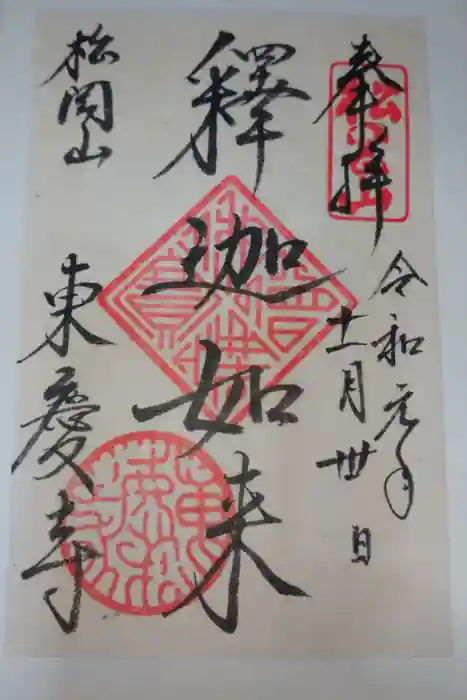 奉拝
令和元年
十一月卅日
釋迦如来
松岡山
東慶寺